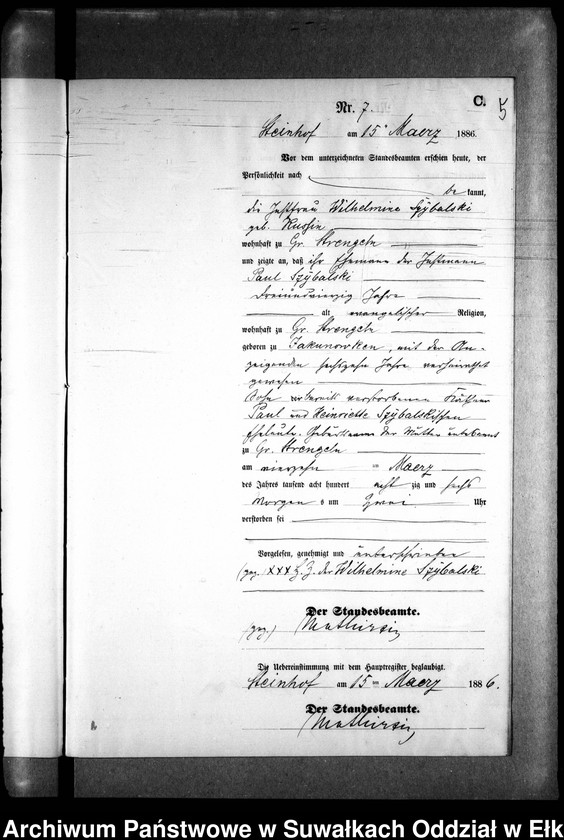 5
C.
Nr. 7.
Steinhof am 15ᵗ Maerz 1886.
Vor dem unterzeichneten Standesbeamten erschien heute, der
Persönlichkeit nach
be kannt,
die Instfrau Wilhelmine Szybalski
geb.
wohnhaft zu Gr. Strengeln
und zeigte an, daß ihr Ehemann der Instmann
Paul Szybalski
dreiundvierzig Jahre
alt evangelischer Religion,
wohnhaft zu Gr. Strengeln
geboren zu Jakunowken, mit der An-
zeigenden sechszehn Jahre verheirathet
gewesen
Sohn der bereits verstorbenen
Paul und Heinriette Szybalskischen
Eheleute. Geburtsname der Mutter unbekannt
zu Gr. Strengeln
am vierzehn ten Maerz
des Jahres tausend acht hundert acht zig und sechs
Morgen s um zwei Uhr
verstorben sei
Vorgelesen, genehmigt und unterschrieben
(gez. XXX H. Z. der Wilhelmine Szybalski
Der Standesbeamte.
(gez.)
Die Uebereinstimmung mit dem Hauptregister beglaubigt.
Steinhof am 15 ten Maerz 1886.
Der Standesbeamte.
Archiwum Państwowe w Suwałkach Oddział w Ełk